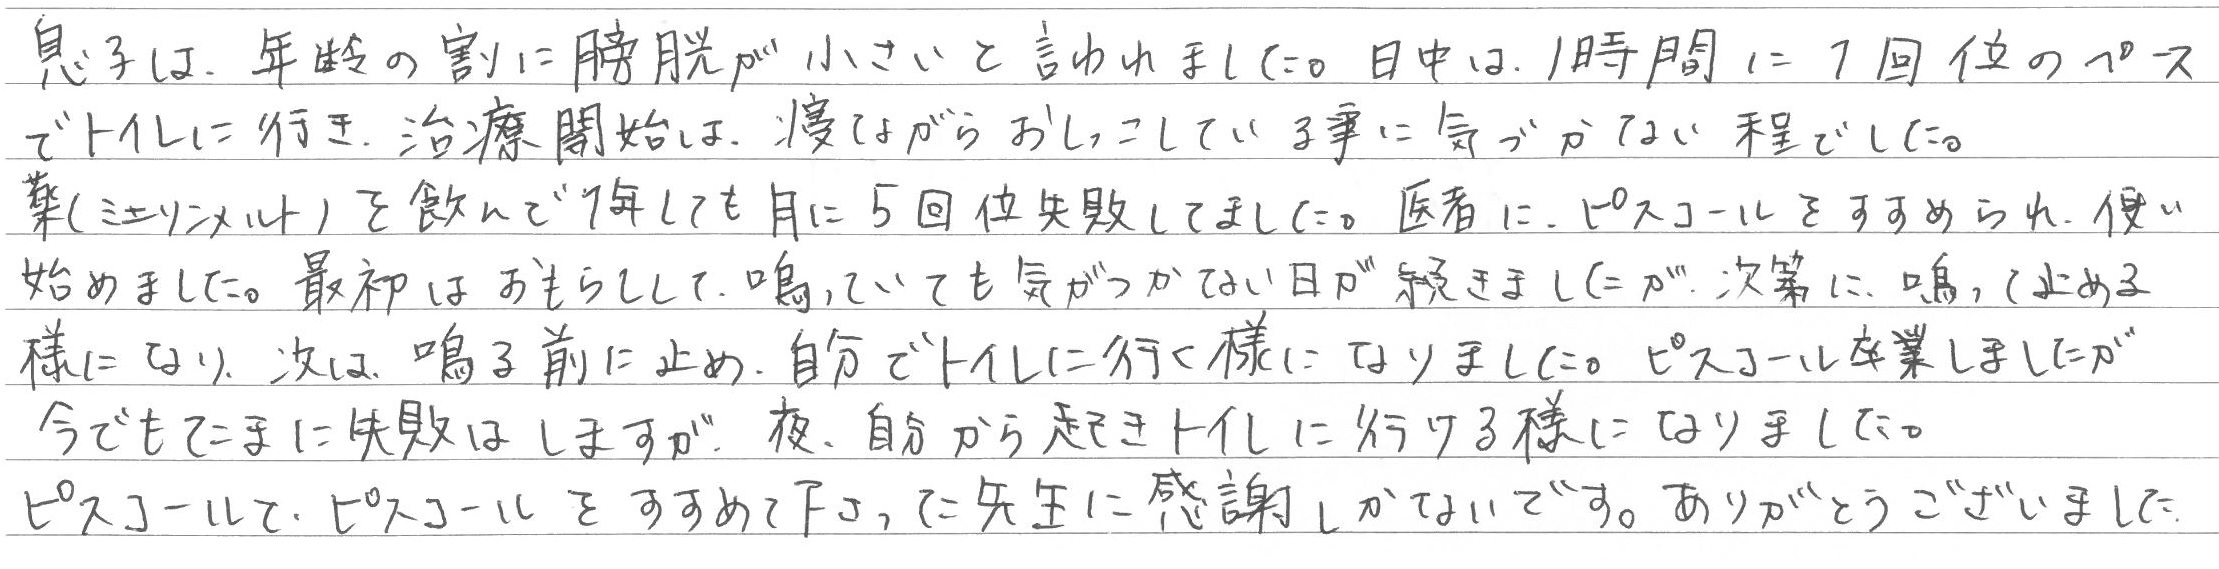 息子は、年齢の割に膀胱が小さいと言われました。日中は、1時間に1回位のペース
でトイレに行き、治療開始は、寝ながらおしっこしている事に気づかない程でした。
薬(ミニリンメルト)を飲んで1年しても月に5回位失敗してました。医者に、ピスコールをすすめられ、使い
始めました。最初はおもらしして、鳴っていても気がつかない日が続きましたが、次第に、鳴って止める
様になり、次は、鳴る前に止め、自分でトイレに行く様になりました。ピスコール卒業しましたが
今でもたまに失敗はしますが、夜、自分から起きトイレに行ける様になりました。
ピスコールと、ピスコールをすすめて下さった先生に感謝しかないです。ありがとうございました。